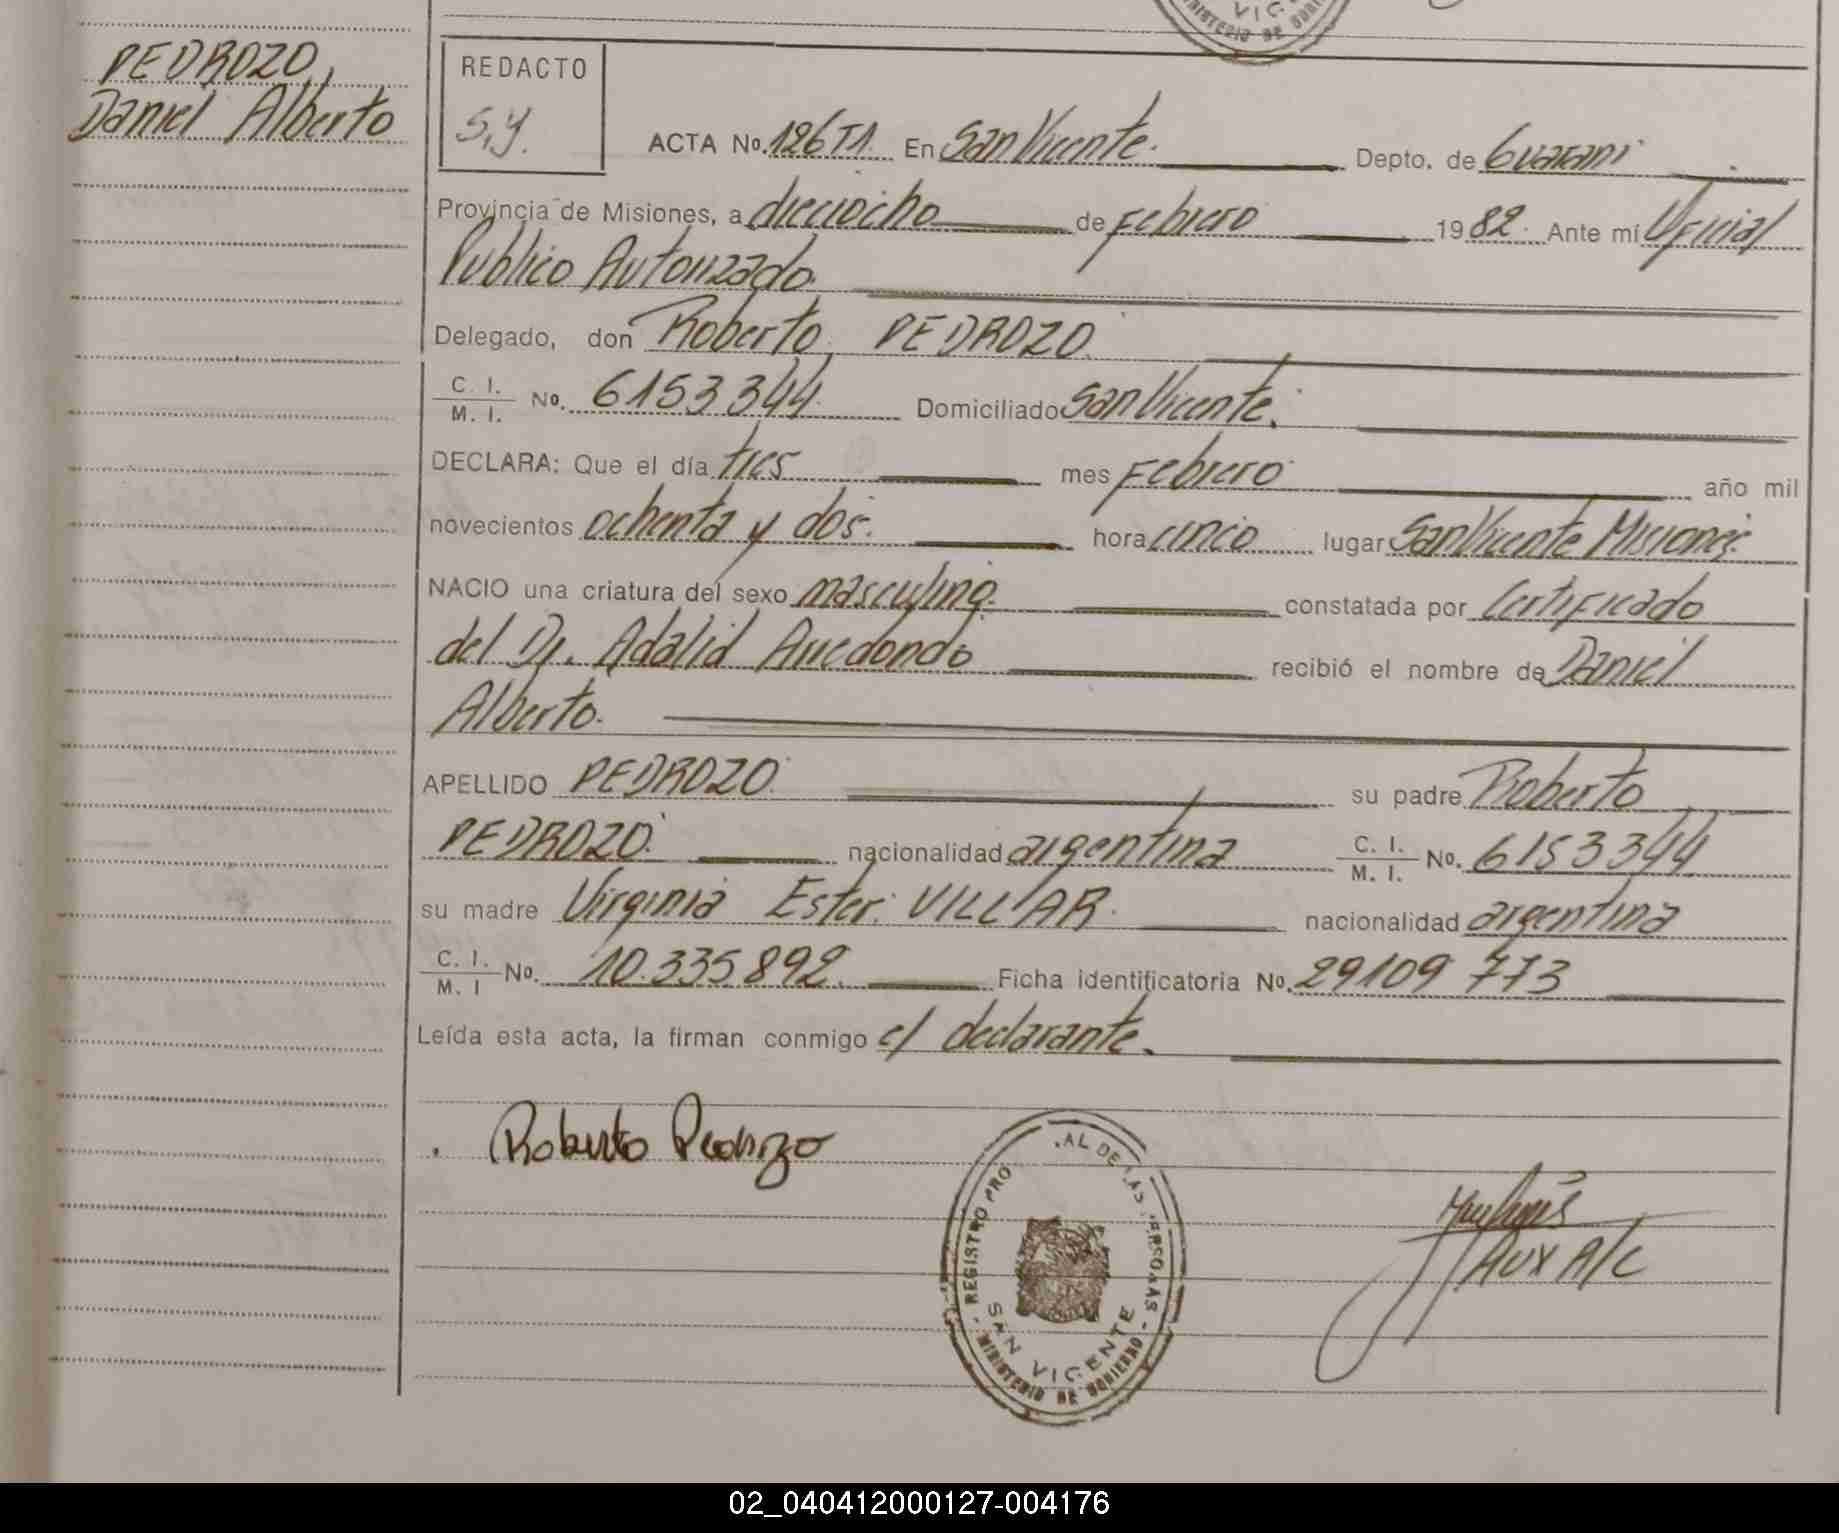 PEDROZO,
Daniel Alberto
REDACTO
S.Y.
ACTA No. 126 T1. En San Vicente. Depto. de Guarani
Provincia de Misiones, a dieciocho de Febrero 1982. Ante mí Oficial
Publico Autorizado
Delegado, don Roberto PEDROZO
C. I. / M. I. No. 6153344 Domiciliado San Vicente.
DECLARA: Que el día tres mes Febrero año mil
novecientos ochenta y dos. hora cinco lugar San Vicente Misiones.
NACIO una criatura del sexo masculino. constatada por Certificado
del Dr. Adalid Arredondo recibió el nombre de Daniel
Alberto.
APELLIDO PEDROZO su padre Roberto
PEDROZO. nacionalidad argentina C. I. / M. I. No. 6153344
su madre Virginia Ester VILLAR nacionalidad argentina
C. I. / M. I No. 10.335892. Ficha identificatoria No. 29109 773
Leída esta acta, la firman conmigo el declarante.
Roberto Pedrozo
REGISTRO PRO AL DE LAS PERSONAS
SAN VICENTE
MINISTERIO DE GOBIERNO
AUX A/C
02_040412000127-004176